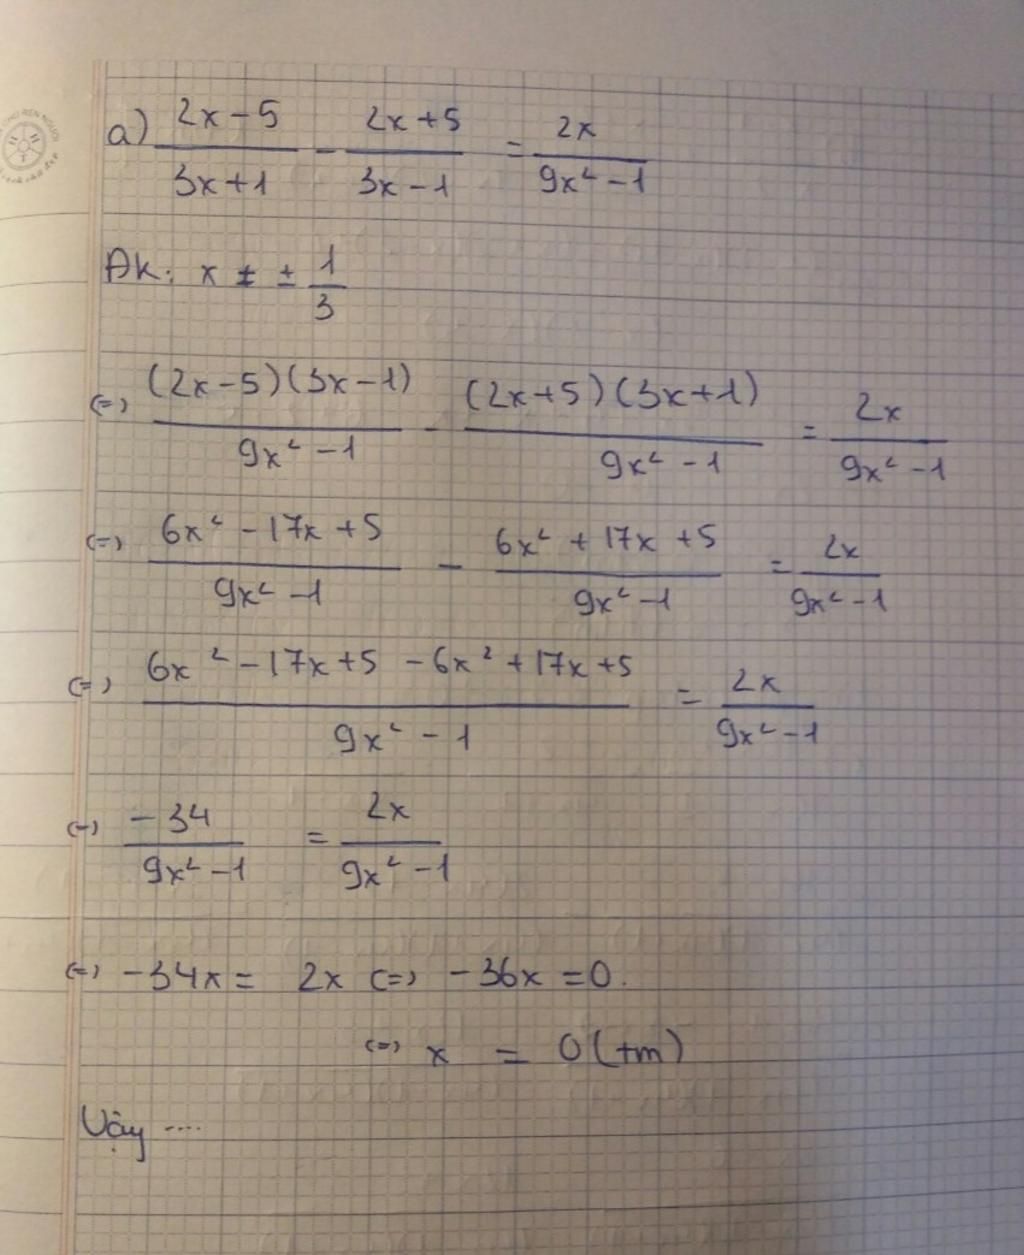 a) (2x-5)/(3x+1) - (2x+5)/(3x-1) = 2x/(9x²-1)
ĐK: x ≠ ± 1/3
(=) ((2x-5)(3x-1))/(9x²-1) - ((2x+5)(3x+1))/(9x²-1) = 2x/(9x²-1)
(=) (6x²-17x+5)/(9x²-1) - (6x²+17x+5)/(9x²-1) = 2x/(9x²-1)
(=) (6x²-17x+5-6x²+17x+5)/(9x²-1) = 2x/(9x²-1)
(=) -34/(9x²-1) = 2x/(9x²-1)
(=) -34x = 2x (=) -36x = 0.
(=) x = 0 (tm)
Vậy ....